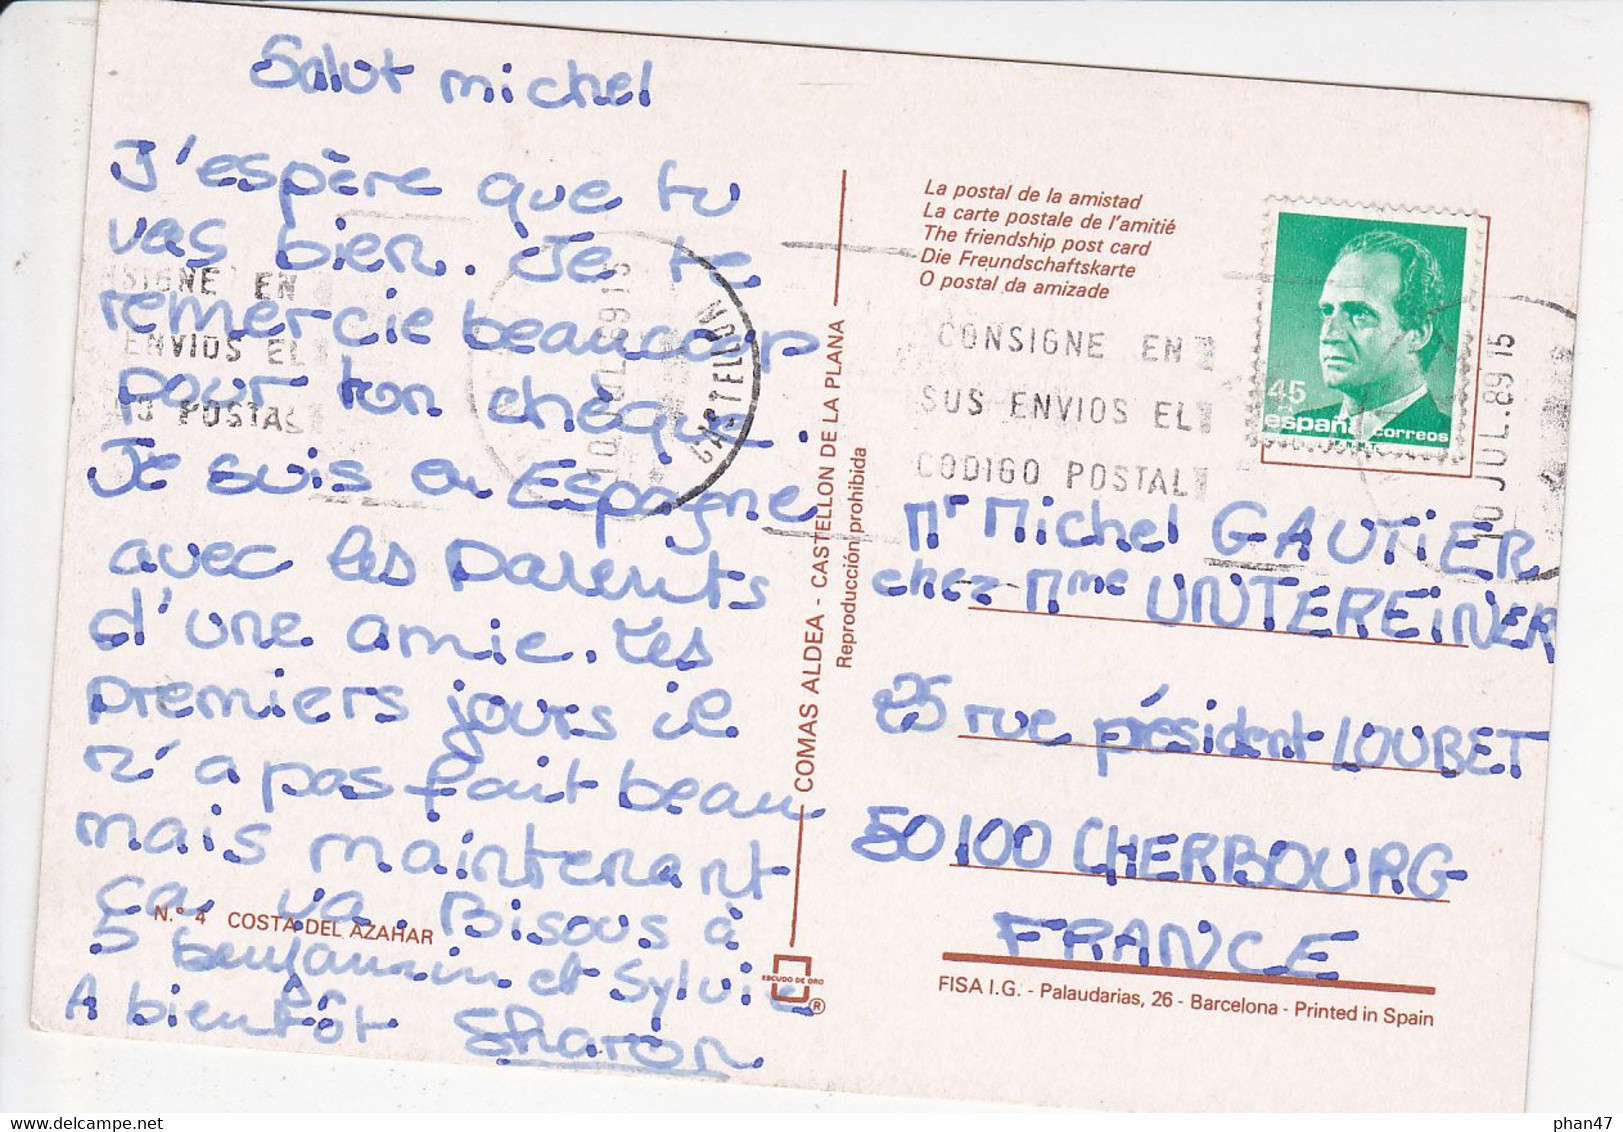 Salut michel
J'espère que tu
vas bien. Je te
remercie beaucoup
pour ton chèque.
Je suis en Espagne
avec les parents
d'une amie. Les
premiers jours il
n'a pas fait beau
mais maintenant
ça va. Bisous à
benjamin et Sylvie
A bientôt Sharon
N.° 4 COSTA DEL AZAHAR
SIGNE EN
ENVIOS EL
POSTAL
10 JUL. 89 15
CASTELLON
COMAS ALDEA - CASTELLON DE LA PLANA
Reproducción prohibida
ESCUDO DE ORO
®
La postal de la amistad
La carte postale de l'amitié
The friendship post card
Die Freundschaftskarte
O postal da amizade
CONSIGNE EN
SUS ENVIOS EL
CODIGO POSTAL
45
españa correos
10 JUL. 89 15
Mr Michel GAUTIER
chez Mme UNTEREINER
25 rue président LOUBET
50100 CHERBOURG
FRANCE
FISA I.G. - Palaudarias, 26 - Barcelona - Printed in Spain
delcampe.net
phan47